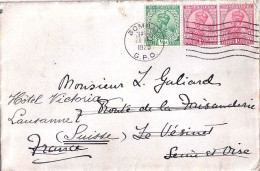 BOMBAY
G.P.O.
Monsieur L. Galiard
Hôtel Victoria
Route de la Faisanderie
Lausanne
(Suisse) Le Vésinet
France
Seine et Oise